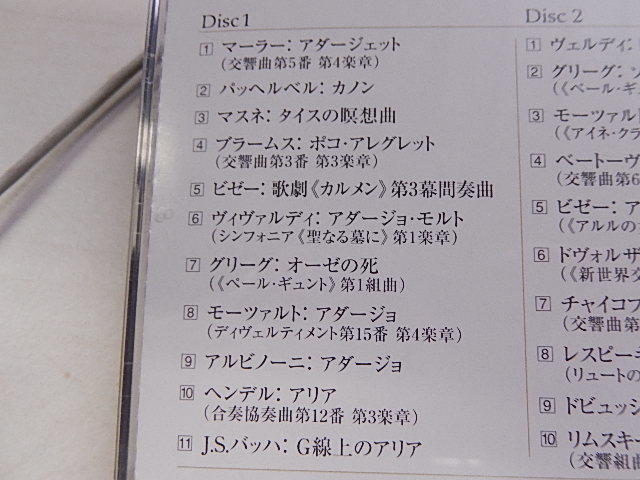 Disc 1
1 マーラー：アダージェット
（交響曲第5番 第4楽章）
2 パッヘルベル：カノン
3 マスネ：タイスの瞑想曲
4 ブラームス：ポコ・アレグレット
（交響曲第3番 第3楽章）
5 ビゼー：歌劇《カルメン》第3幕間奏曲
6 ヴィヴァルディ：アダージョ・モルト
（シンフォニア《聖なる墓に》第1楽章）
7 グリーグ：オーゼの死
（《ペール・ギュント》第1組曲）
8 モーツァルト：アダージョ
（ディヴェルティメント第15番 第4楽章）
9 アルビノーニ：アダージョ
10 ヘンデル：アリア
（合奏協奏曲第12番 第3楽章）
11 J.S.バッハ：G線上のアリア
Disc 2
1 ヴェルディ：
2 グリーグ：
（《ペール・ギ
3 モーツァルト
（《アイネ・クラ
4 ベートーヴ
（交響曲第6
5 ビゼー：ア
（《アルルの
6 ドヴォルザ
（《新世界交
7 チャイコフ
（交響曲第
8 レスピー
（リュートの
9 ドビュッシ
10 リムスキー
（交響組曲